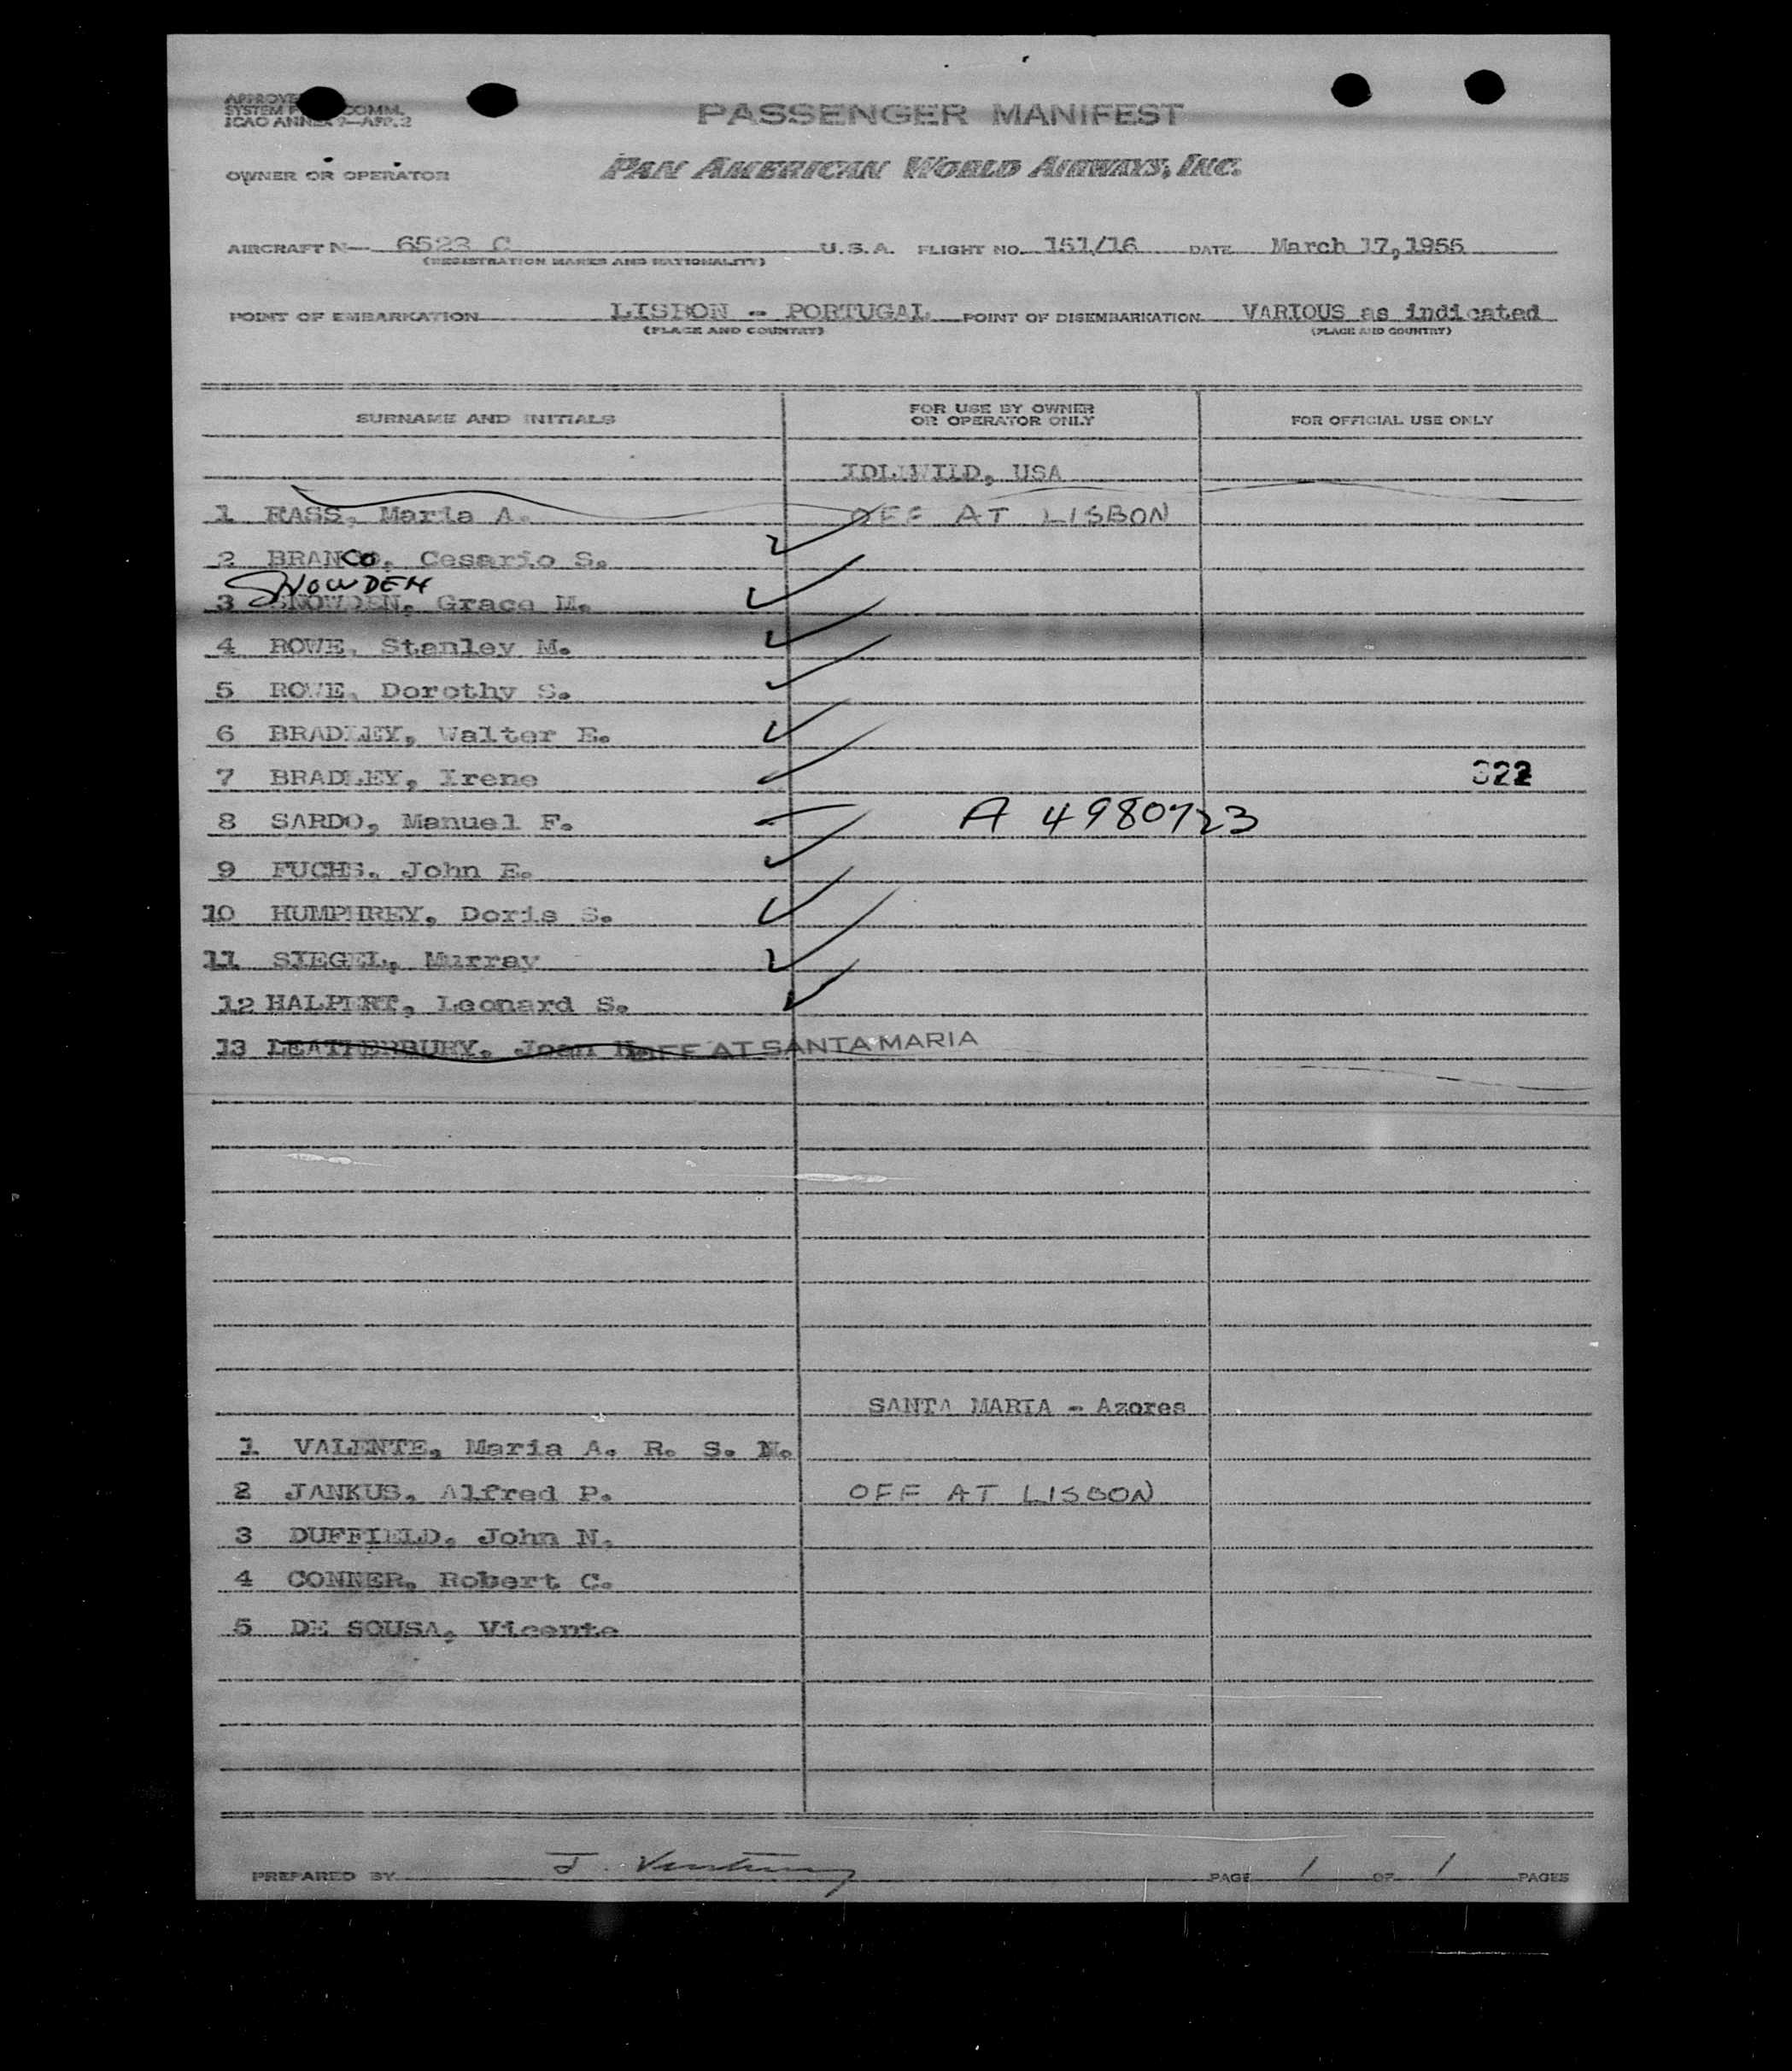 APPROVE COMM.
SYSTEM F
ICAO ANNEX 9—APP. 2
PASSENGER MANIFEST
OWNER OR OPERATOR PAN AMERICAN WORLD AIRWAYS, INC.
AIRCRAFT N— 6523 C U.S.A. FLIGHT NO. 151/16 DATE March 17, 1955
(REGISTRATION MARKS AND NATIONALITY)
POINT OF EMBARKATION LISBON - PORTUGAL POINT OF DISEMBARKATION VARIOUS as indicated
(PLACE AND COUNTRY) (PLACE AND COUNTRY)
SURNAME AND INITIALS FOR USE BY OWNER OR OPERATOR ONLY FOR OFFICIAL USE ONLY
IDLEWILD, USA
1 Maria A. OFF AT LISBON
2 BRANCO, Cesario S.
SNOWDEN
3 SNOWDEN, Grace M.
4 ROWE, Stanley M.
5 ROWE, Dorothy S.
6 BRADLEY, Walter E.
7 BRADLEY, Irene 322
8 SARDO, Manuel F. A 4980723
9 FUCHS, John E.
10 HUMPHREY, Doris S.
11 SIEGEL, Murray
12 HALPERT, Leonard S.
13 LEATHERBURY, Joan H. OFF AT SANTA MARIA
SANTA MARIA - Azores
1 VALENTE, Maria A. R. S. N.
2 JANKUS, Alfred P. OFF AT LISBON
3 DUFFIELD, John N.
4 CONNER, Robert C.
5 DE SOUSA, Vicente
PREPARED BY J. PAGE 1 OF 1 PAGES